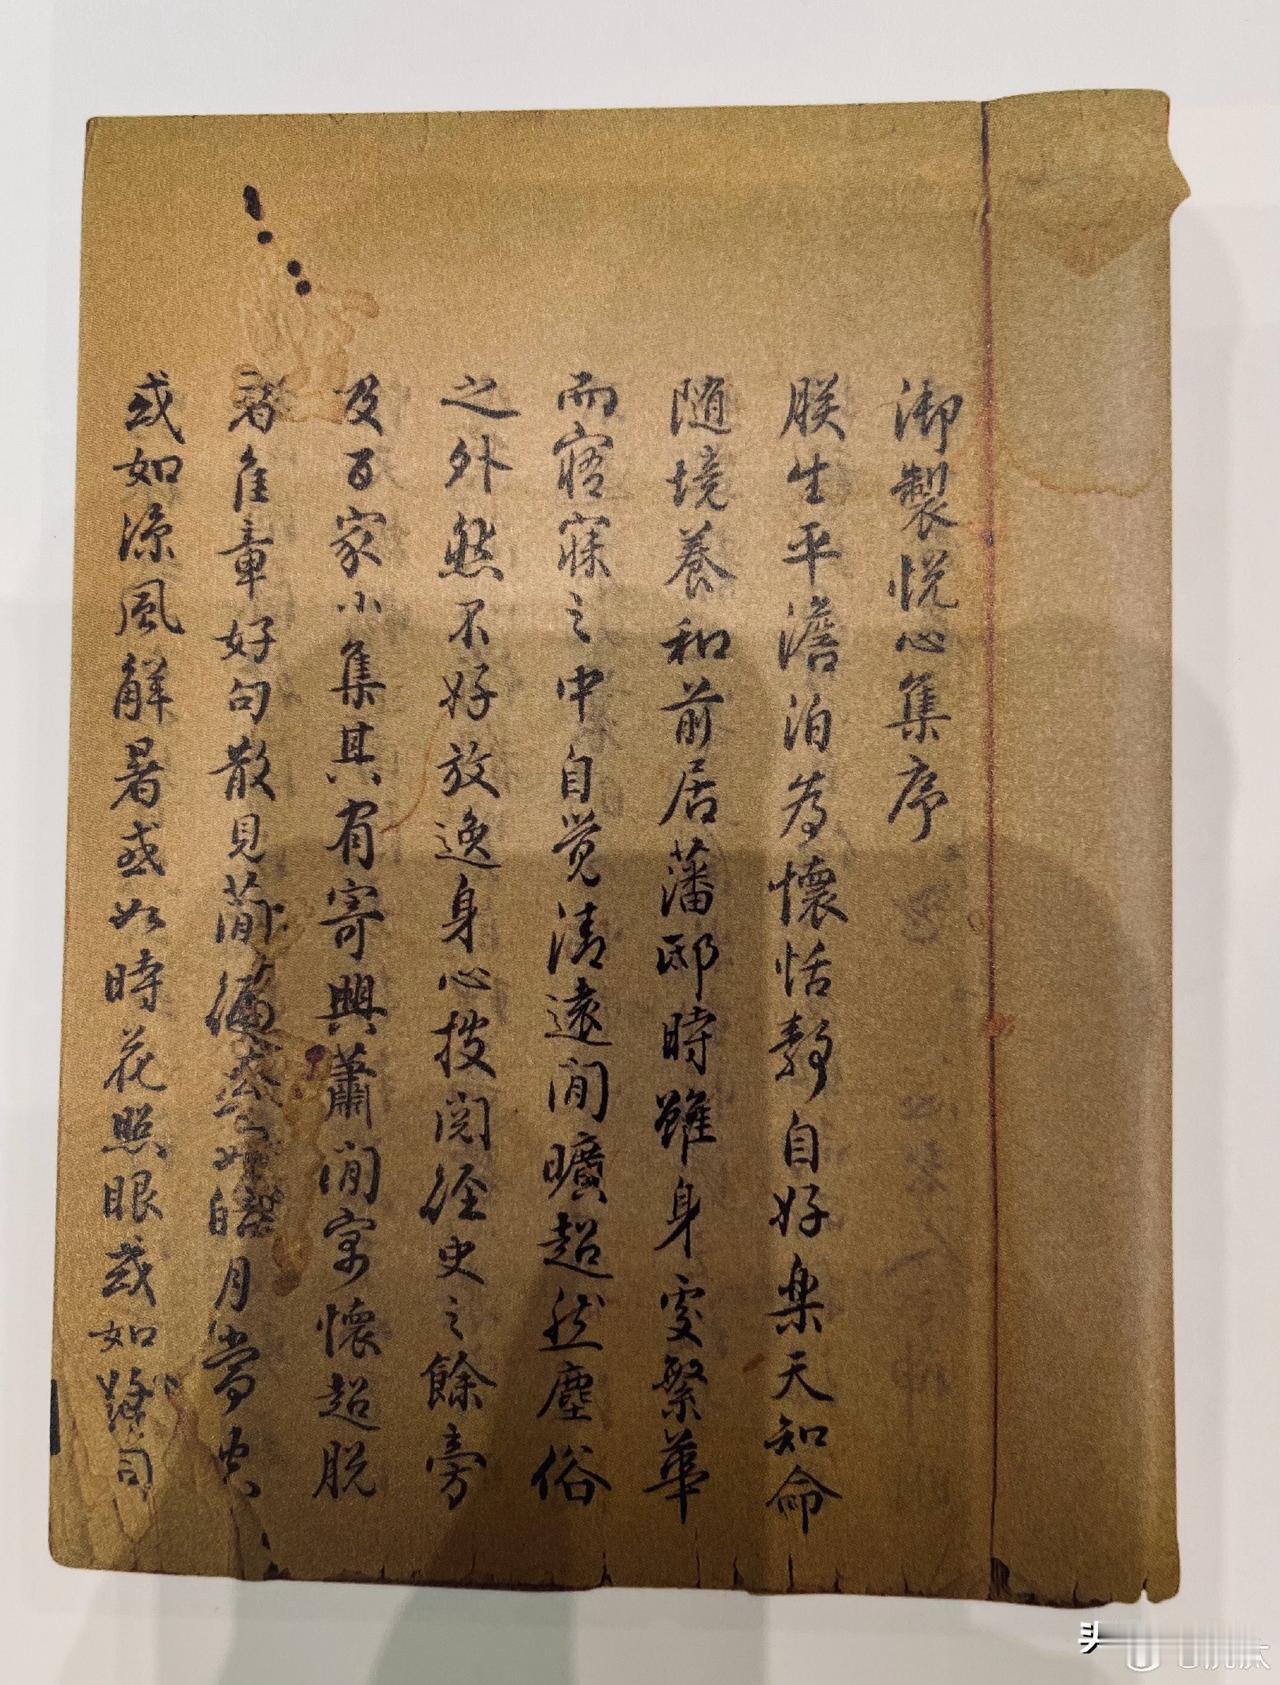 御製悦心集序
朕生平澹泊为懷恬静自好楽天知命
随境養和前居藩邸時雖身處繁華
而寤寐之中自觉清遠閒曠超然塵俗
之外然不好放逸身心披阅经史之餘旁
及百家小集其有寄興蕭閒寓懷超脱
者佳章好句散見簡編或如皓月當空
或如凉風解暑或如時花照眼或如
头